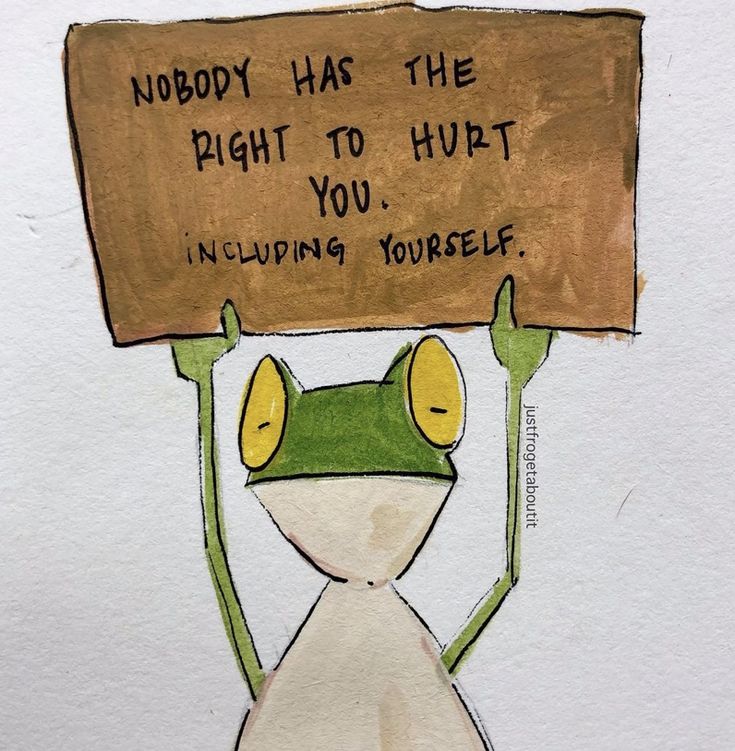 NOBODY HAS THE
RIGHT TO HURT
YOU.
iNCLUDING YOURSELF.
justfrogetaboutit